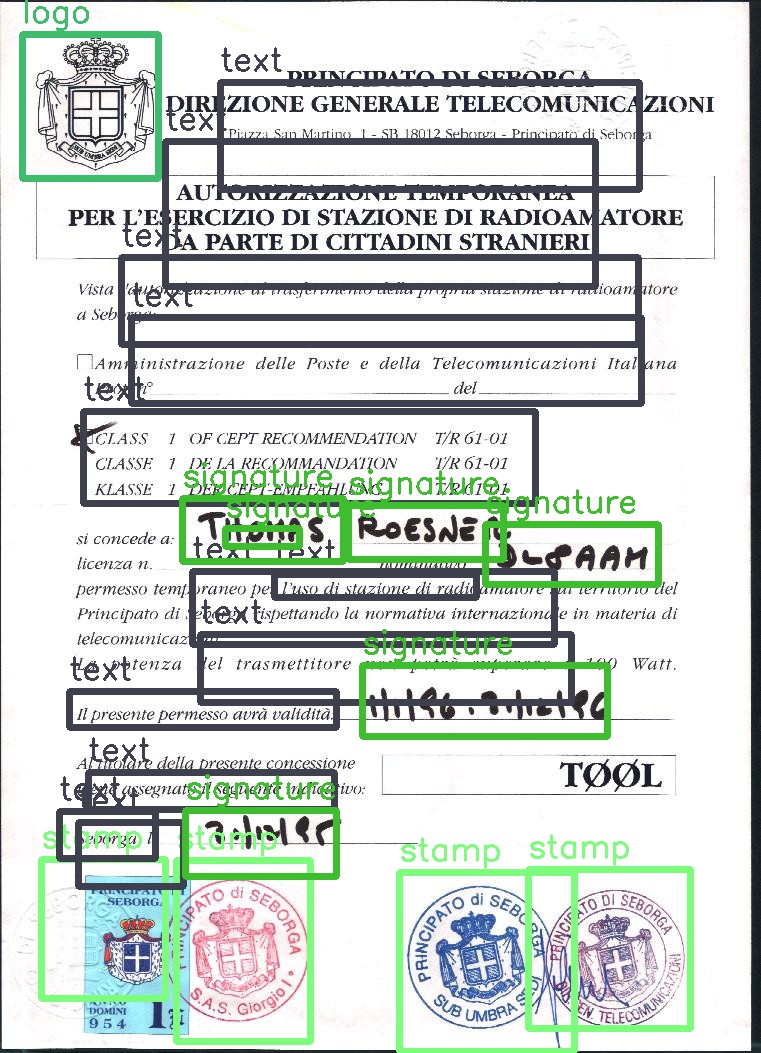 logo
text
PRINCIPATO DI SEBORGA
DIREZIONE GENERALE TELECOMUNICAZIONI
text
Piazza San Martino, 1 - SB 18012 Seborga - Principato di Seborga
AUTORIZZAZIONE TEMPORANEA
PER L'ESERCIZIO DI STAZIONE DI RADIOAMATORE
DA PARTE DI CITTADINI STRANIERI
text
Vista l'autorizzazione al trasferimento della propria stazione di radioamatore
text
a Seborga:
Amministrazione delle Poste e della Telecomunicazioni Italiana
text
del
CLASS 1 OF CEPT RECOMMENDATION T/R 61-01
CLASSE 1 DE LA RECOMMANDATION T/R 61-01
KLASSE 1 DER CEPT-EMPFAHLUNG T/R 61-01
signature signature
signature signature
si concede a: THOMAS ROESNER
text text
licenza n. nominativo DL8AAM
permesso temporaneo per l'uso di stazione di radioamatore sul territorio del
text
Principato di Seborga rispettando la normativa internazionale in materia di
telecomunicazioni.
signature
La potenza del trasmettitore non potrà superare i 100 Watt.
text
Il presente permesso avrà validità: 1/1/96 - 31/12/96
text
Al titolare della presente concessione
viene assegnato il seguente indicativo: TØØL
text text signature
Seborga, lì
stamp stamp stamp stamp
PRINCIPATO DI SEBORGA
ANNO DOMINI 954
PRINCIPATO di SEBORGA
S.A.S. Giorgio I°
PRINCIPATO di SEBORGA
SUB UMBRA SEDI
PRINCIPATO di SEBORGA
DIR. GEN. TELECOMUNICAZIONI